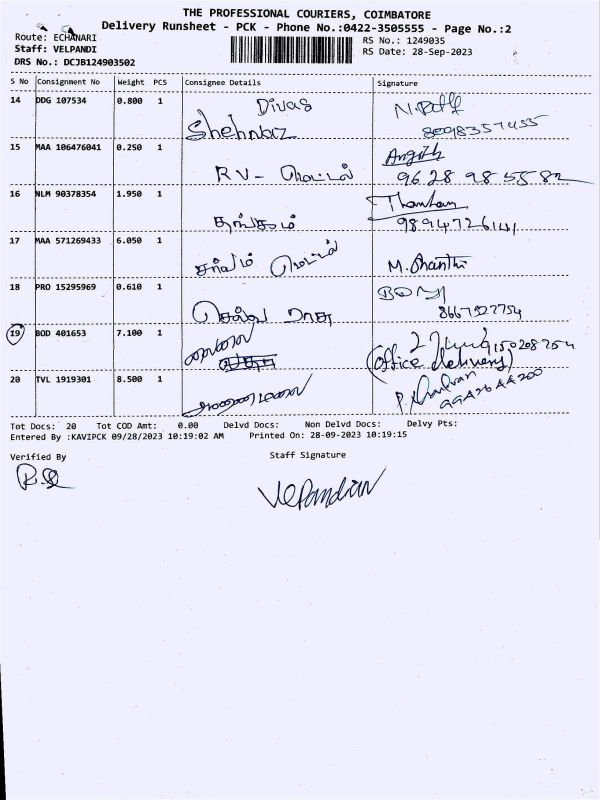 THE PROFESSIONAL COURIERS, COIMBATORE
Delivery Runsheet - PCK - Phone No.:0422-3505555 - Page No.:2
Route: ECHANARI
RS No.: 1249035
Staff: VELPANDI
RS Date: 28-Sep-2023
DRS No.: DCJB124903502
S No Consignment No Weight PCS Consignee Details Signature
14 DDG 107534 0.800 1 Divas
Shehnaz
15 MAA 106476041 0.250 1
RV - மெட்டல் 96 28 98 55 82
16 NLM 90378354 1.950 1
தங்கம் 9894726141
17 MAA 571269433 6.050 1
மெட்டல் M. Shanthi
18 PRO 15295969 0.610 1
8667522754
19 BOD 401653 7.100 1
(office delivery)
20 TVL 1919301 8.500 1
Tot Docs: 20 Tot COD Amt: 0.00 Delvd Docs: Non Delvd Docs: Delvy Pts:
Entered By :KAVIPCK 09/28/2023 10:19:02 AM Printed On: 28-09-2023 10:19:15
Verified By Staff Signature
VelPandian